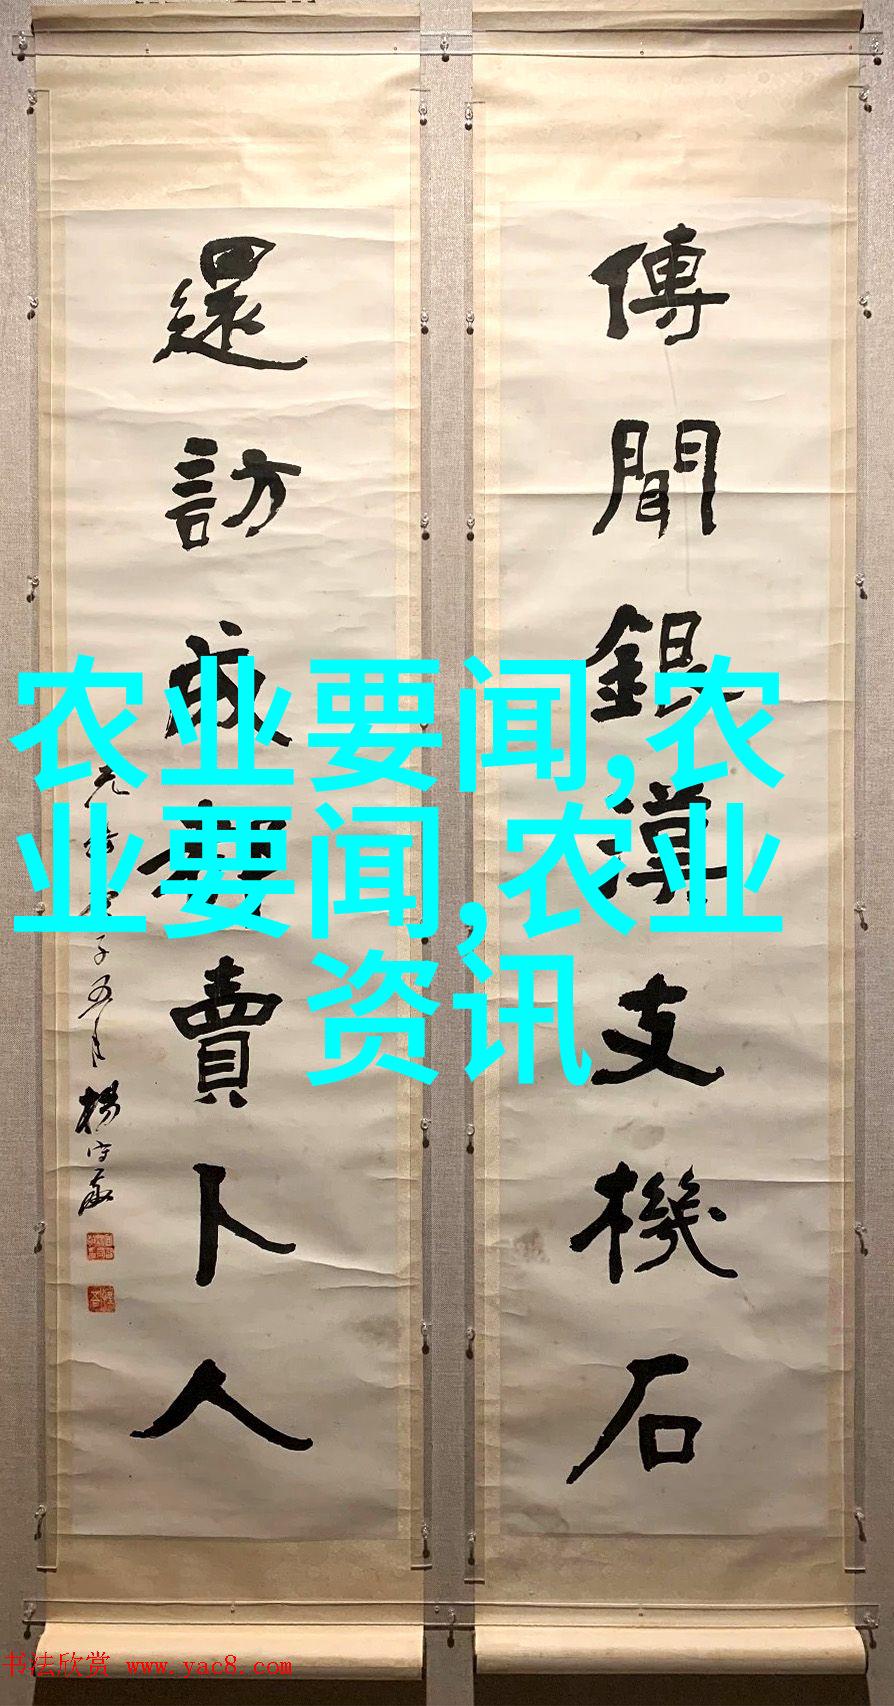 傳聞銀漢支機石
還訪成都賣卜人
子五月楊守敬
农业要闻,农
业要闻,农业
资讯
书法欣赏 www.yac8.com